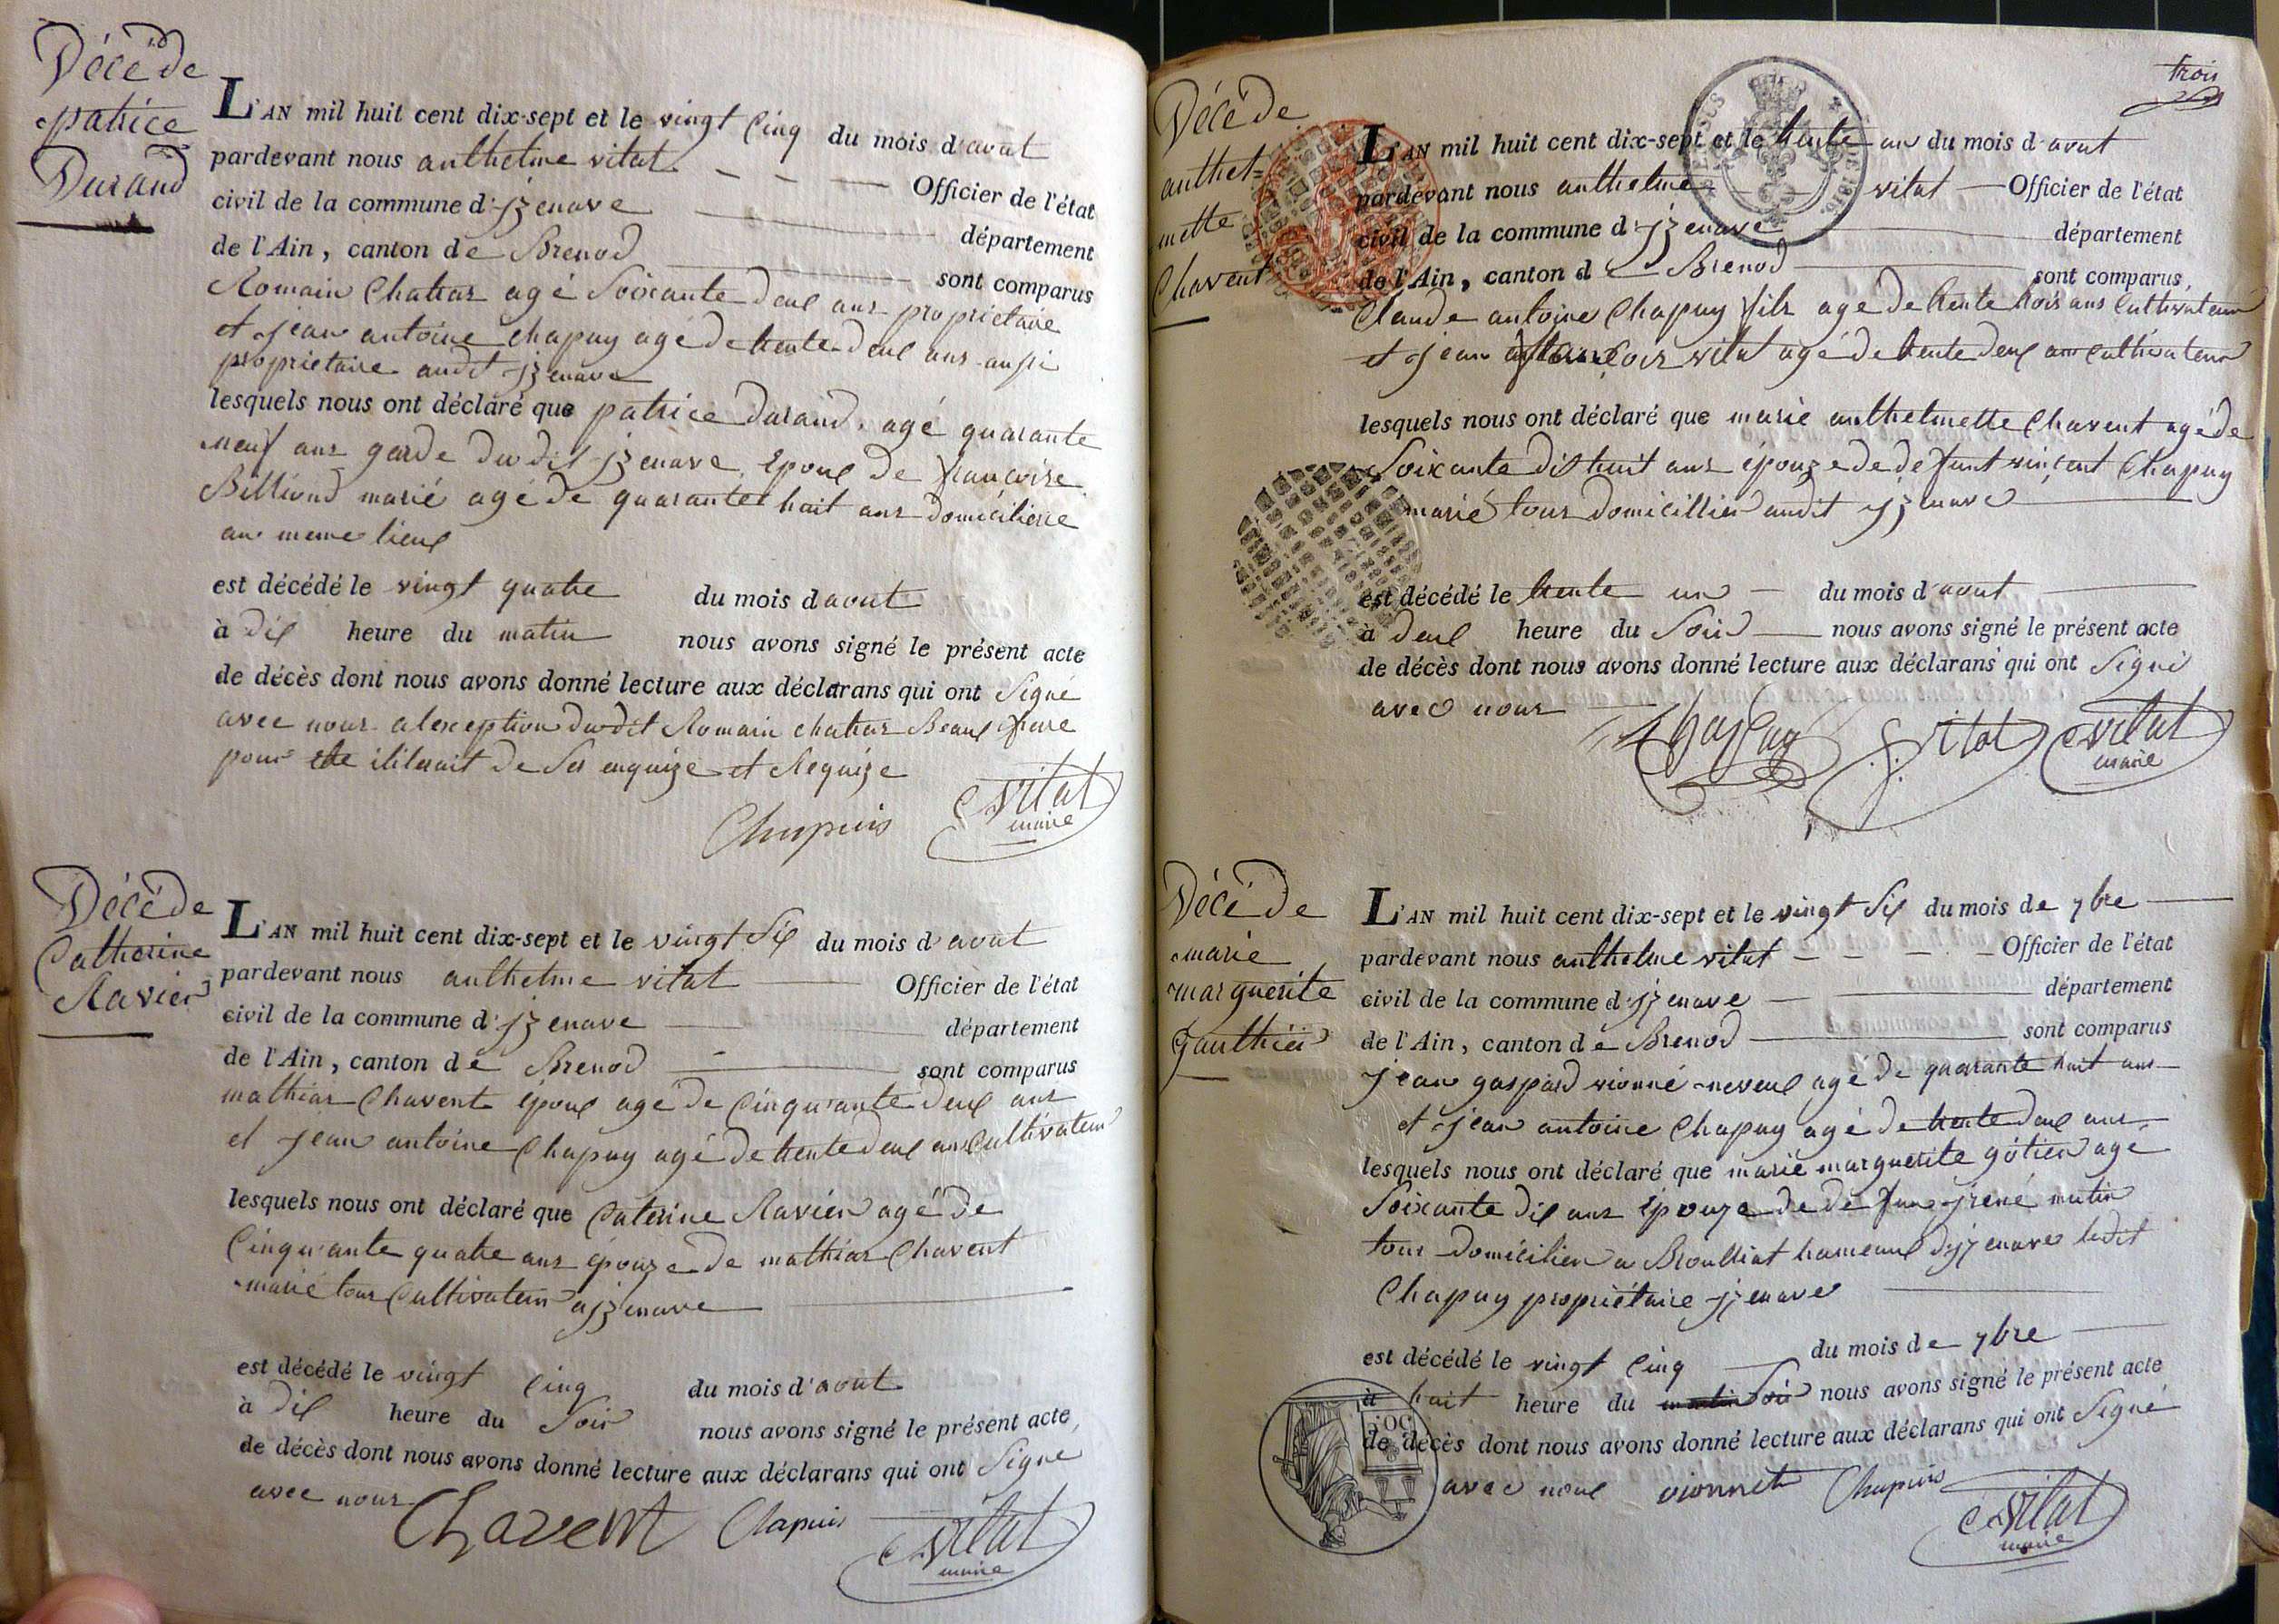 Décé de
patrice
Durand
L'AN mil huit cent dix-sept et le vingt cinq du mois d'avut
pardevant nous anthelme vitat Officier de l'état
civil de la commune d'jzenave département
de l'Ain, canton de Brenod sont comparus
Romain Chatras agé Soixante deux ans propriétaire
et jean antoine chapuy agé de trente deux ans aussi
propriétaire audit jzenave
lesquels nous ont déclaré que patrice durand agé quarante
neuf ans garde dudit jzenave Epoux de francoise
Billiond marié agé de quarante huit ans domiciliere
au meme lieux
est décédé le vingt quatre du mois d'avut
à dix heure du matin nous avons signé le présent acte
de décès dont nous avons donné lecture aux déclarans qui ont Signé
avec nous alexception dudit Romain chatras Beaux frere
pour ililerait de Ses enquize et Requize
Chapuis vitat
maire
Décé de
Catherine
Ravier
L'AN mil huit cent dix-sept et le vingt Six du mois d'avut
pardevant nous anthelme vitat Officier de l'état
civil de la commune d'jzenave département
de l'Ain, canton de Brenod sont comparus
mathias Chavent époux agé de Cinquante deux ans
et jean antoine Chapuy agé de trente deux ans Cultivateur
lesquels nous ont déclaré que Caterine Ravier agé de
Cinquante quatre ans épouze de mathias Chavent
marié tous Cultivateur a jzenave
est décédé le vingt cinq du mois d'avut
à dix heure du Soir nous avons signé le présent acte,
de décès dont nous avons donné lecture aux déclarans qui ont Signé
avec nous Chavent Chapuis vitat
maire
trois
Décé de
anthel=
mette
Chavent
L'AN mil huit cent dix-sept et le trente un du mois d'avut
pardevant nous anthelme vitat Officier de l'état
civil de la commune d'jzenave département
de l'Ain, canton de Brenod sont comparus,
Claude antoine Chapuy fils agé de trente trois ans Cultivateur
et jean francois vitat agé de trente deux ans cultivateur
lesquels nous ont déclaré que marie anthelmette Chavent agé de
Soixante dishuit ans épouze de defunt vincent Chapuy
marié tous domicillier audit jzenave
est décédé le trente un du mois d'avut
à deux heure du Soir nous avons signé le présent acte
de décès dont nous avons donné lecture aux déclarans qui ont Signé
avec nous Chapuy J. vitat vitat
maire
Décé de
marie
marguerite
gauthier
L'AN mil huit cent dix-sept et le vingt Six du mois de 7bre
pardevant nous anthelme vitat Officier de l'état
civil de la commune d'jzenave département
de l'Ain, canton de Brenod sont comparus
jean gaspard vionné neveux agé de quarante huit ans
et jean antoine Chapuy agé de trente deux ans
lesquels nous ont déclaré que marie marguerite gotier agé
Soixante dix ans Epouze de defun jrené mutin
tous domicilier a Broulliat hameaux d'jzenave ledit
Chapuy propriétaire jzenave
est décédé le vingt cinq du mois de 7bre
à huit heure du matin Soir nous avons signé le présent acte
de décès dont nous avons donné lecture aux déclarans qui ont Signé
avec nous vionnet Chapuis vitat
maire